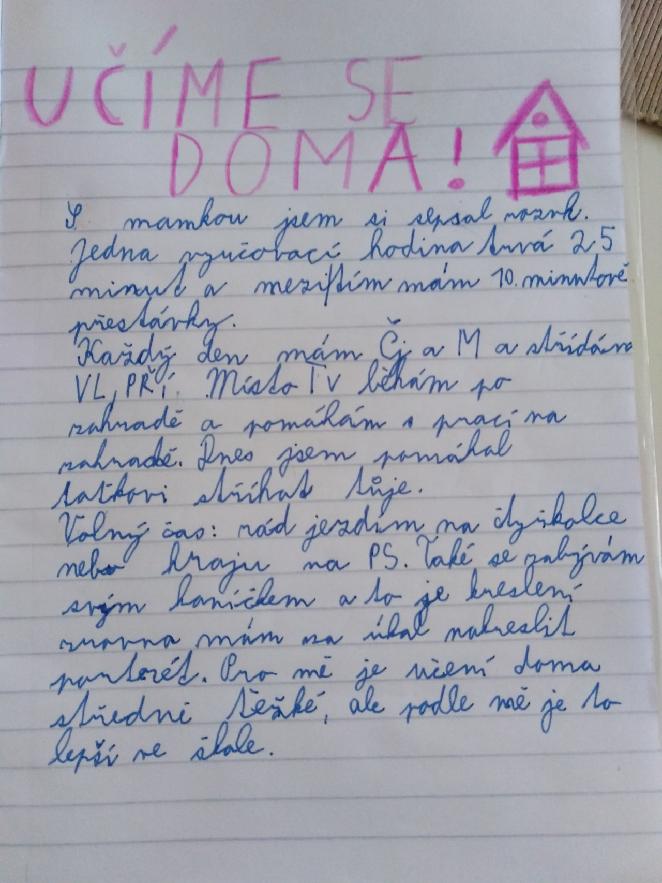 UČÍME SE
DOMA!
S mamkou jsem si sepsal rozvrh.
Jedna vyučovací hodina trvá 25
minut a mezitím mám 10. minutové
přestávky.
Každý den mám Čj a M a střídám
VL, PŘÍ. Místo Tv běhám po
zahradě a pomáhám s prací na
zahradě. Dnes jsem pomáhal
taťkovi stříhat túje.
Volný čas: rád jezdím na čtyřkolce
nebo hraju na PS. Také se zabývám
svým koníčkem a to je kreslení
zrovna mám za úkol nakreslit
portorét. Pro mě je učení doma
středně těžké, ale podle mě je to
lepší ve škole.